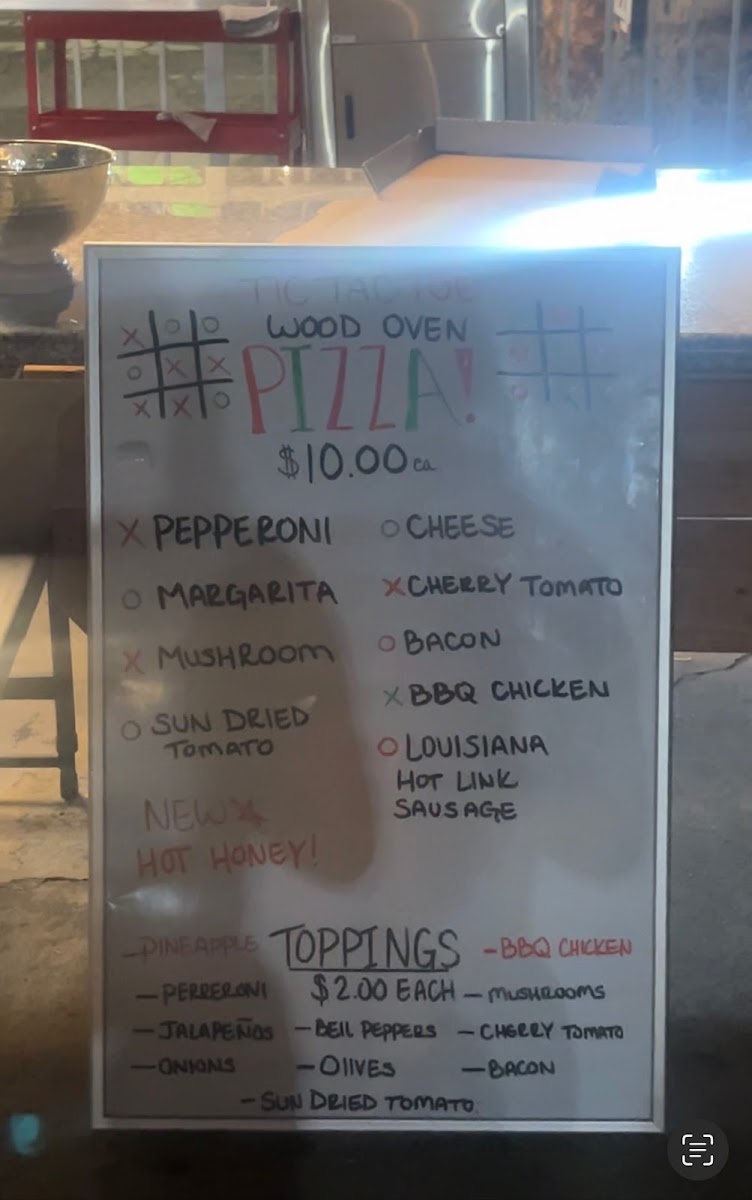 TIC TAC TOE
WOOD OVEN
PIZZA!
$10.00 ea
X PEPPERONI
O CHEESE
O MARGARITA
X CHERRY TOMATO
X MUSHROOM
O BACON
O SUN DRIED
TOMATO
X BBQ CHICKEN
O LOUISIANA
HOT LINK
SAUSAGE
NEW
HOT HONEY!
TOPPINGS
$2.00 EACH
- PINEAPPLE
- BBQ CHICKEN
- PEPPERONI
- MUSHROOMS
- JALAPEÑOS
- BELL PEPPERS
- CHERRY TOMATO
- ONIONS
- OLIVES
- BACON
- SUN DRIED TOMATO